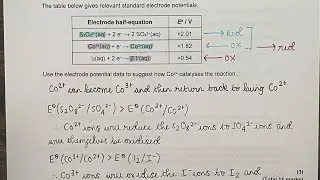 The table below gives relevant standard electrode potentials.
Electrode half-equation E° / V
S₂O₈²⁻(aq) + 2 e⁻ → 2 SO₄²⁻(aq) +2.01 → red
Co³⁺(aq) + e⁻ → Co²⁺(aq) +1.82 ← ox
I₂(aq) + 2 e⁻ → 2 I⁻(aq) +0.54 ← ox
red
Use the electrode potential data to suggest how Co²⁺ catalyses the reaction.
Co²⁺ can become Co³⁺ and then return back to being Co²⁺
E°(S₂O₈²⁻/SO₄²⁻) > E°(Co³⁺/Co²⁺)
∴ Co²⁺ ions will reduce the S₂O₈²⁻ ions to SO₄²⁻ ions and
will themselves be oxidised
E°(Co³⁺/Co²⁺) > E°(I₂/I⁻)
∴ Co³⁺ ions will oxidise the I⁻ ions to I₂ and
(3)